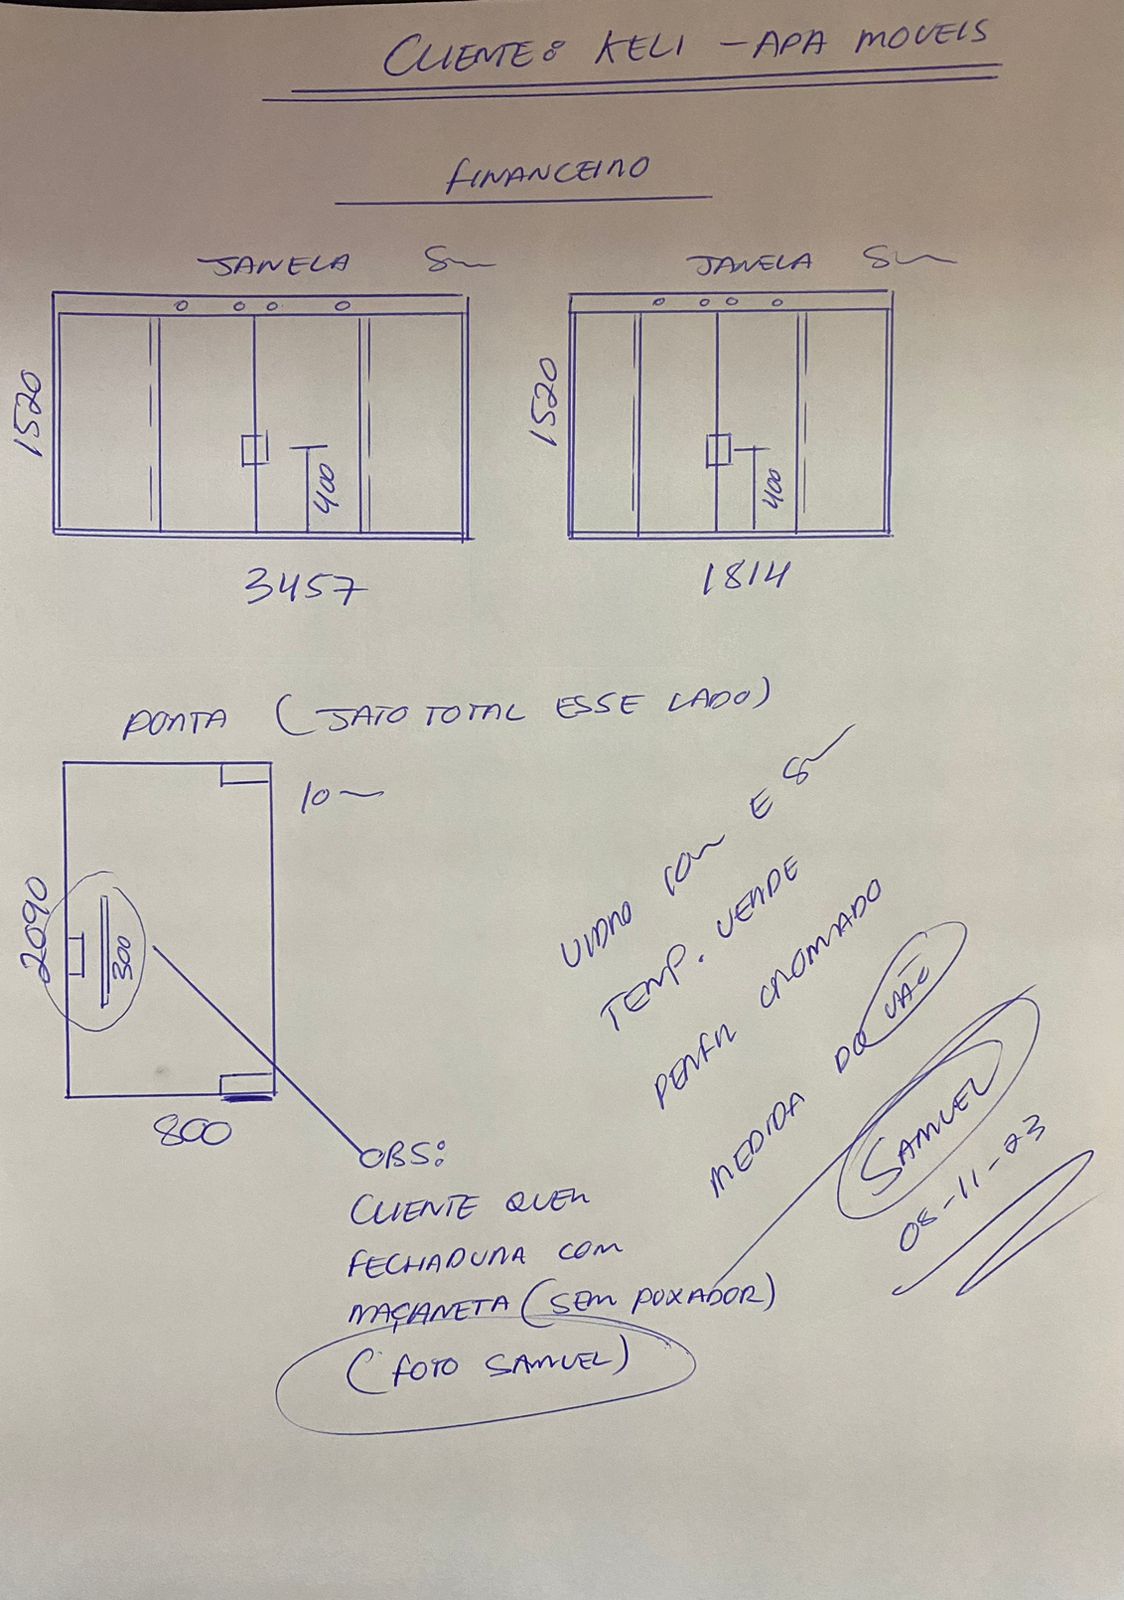 CLIENTE: KELI - APA MOVEIS
FINANCEIRO
JANELA 8m
JANELA 8m
1520
400
3457
1520
400
1814
PORTA (JATO TOTAL ESSE LADO)
10m
2090
300
800
VIDRO 10m E 8m
TEMP. VERDE
PERFIL CROMADO
MEDIDA DO VÃO
SAMUEL
08-11-23
OBS:
CLIENTE QUER
FECHADURA COM
MAÇANETA (SEM PUXADOR)
(FOTO SAMUEL)